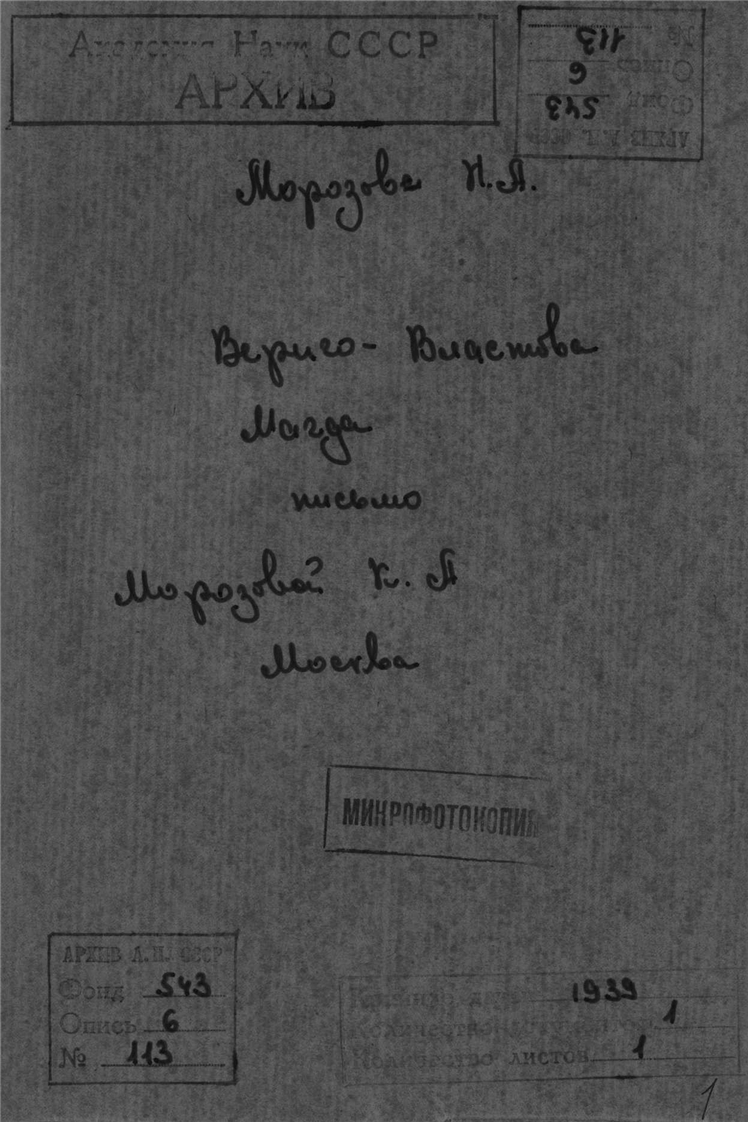 Академия Наук СССР
АРХИВ
№ 113
Опись 6
Фонд 543
АРХИВ А.Н. СССР
Морозова Н.А.
Вериго- Властова
Магда
письмо
Морозовой К. А
Москва
МИКРОФОТОКОПИЯ
АРХИВ А.Н. СССР
Фонд 543
Опись 6
№ 113
1939
Количество 1
Количество листов 1
1